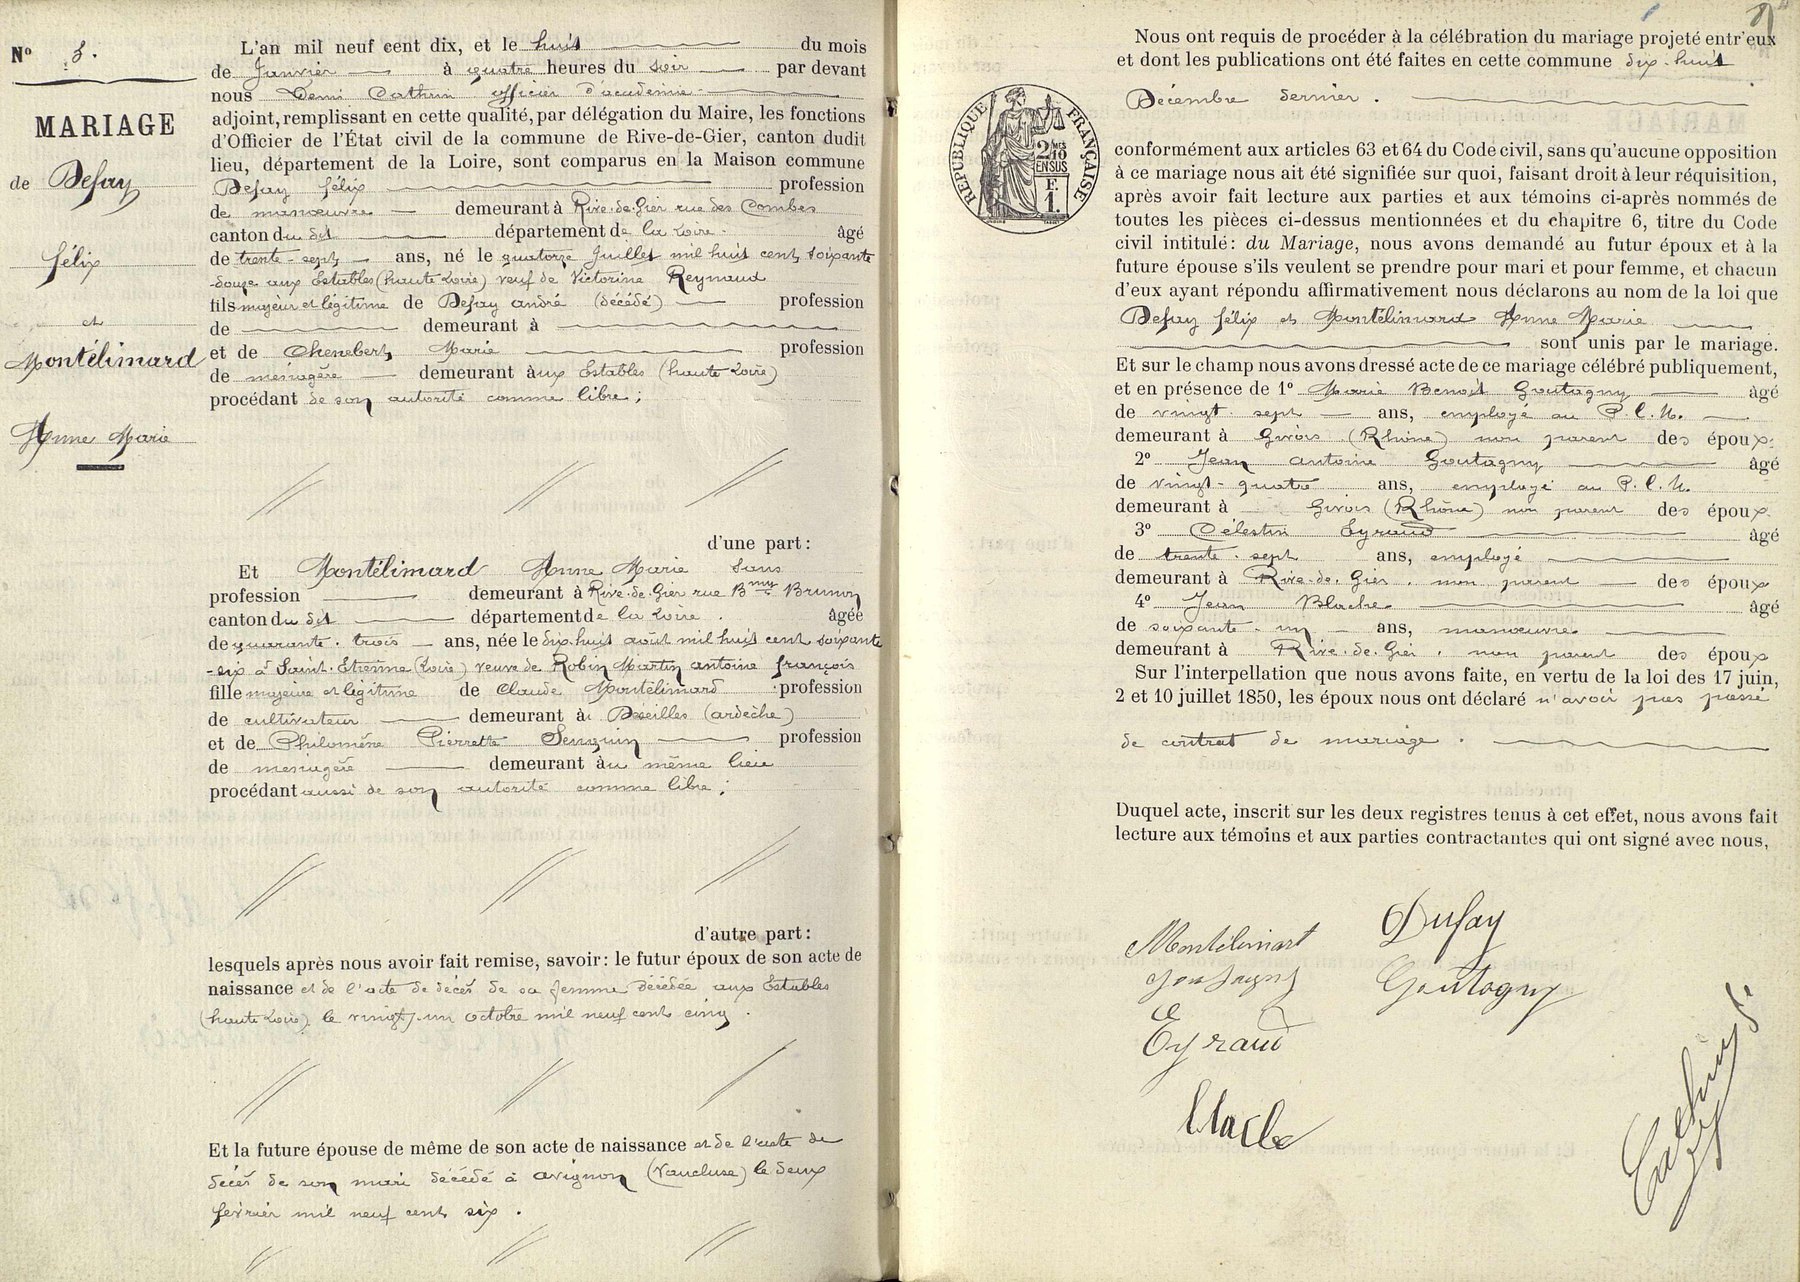 N° 3.
MARIAGE
de Defay
félix
et
Montélimard
Anne Marie
L'an mil neuf cent dix, et le huit du mois
de Janvier à quatre heures du soir par devant
nous Remi Cathrin officier d'académie
adjoint, remplissant en cette qualité, par délégation du Maire, les fonctions
d'Officier de l'État civil de la commune de Rive-de-Gier, canton dudit
lieu, département de la Loire, sont comparus en la Maison commune
Defay félix profession
de manœuvre demeurant à Rive-de-Gier rue des Combes
canton du dit département de la Loire. âgé
de trente-sept ans, né le quatorze Juillet mil huit cent soixante
-douze aux Estables (haute Loire) veuf de Victorine Reynaud
fils majeur et légitime de Defay andré (décédé) profession
de demeurant à
et de Chenebert Marie profession
de ménagère demeurant aux Estables (haute Loire)
procédant de son autorité comme libre;
d'une part:
Et Montélimard Anne Marie sans
profession demeurant à Rive-de-Gier rue Bmy Brunon
canton du dit département de la Loire. âgée
de quarante-trois ans, née le dix-huit août mil huit cent soixante
-six à Saint-Etienne (Loire) veuve de Robin Martin antoine françois
fille majeure et légitime de Claude Montélimard profession
de cultivateur demeurant à (ardèche)
et de Philomène Pierrette Senguin profession
de ménagère demeurant au même lieu
procédant aussi de son autorité comme libre;
d'autre part:
lesquels après nous avoir fait remise, savoir: le futur époux de son acte de
naissance et de l'acte de décès de sa femme décédée aux Estables
(haute Loire) le vingt-un octobre mil neuf cent cinq.
Et la future épouse de même de son acte de naissance et de l'acte de
décès de son mari décédé à avignon (Vaucluse) le deux
février mil neuf cent six.
Nous ont requis de procéder à la célébration du mariage projeté entr'eux
et dont les publications ont été faites en cette commune dix-huit
Décembre dernier.
RÉPUBLIQUE FRANÇAISE
2/10 MES
EN SUS
F.
1.
conformément aux articles 63 et 64 du Code civil, sans qu'aucune opposition
à ce mariage nous ait été signifiée sur quoi, faisant droit à leur réquisition,
après avoir fait lecture aux parties et aux témoins ci-après nommés de
toutes les pièces ci-dessus mentionnées et du chapitre 6, titre du Code
civil intitulé: du Mariage, nous avons demandé au futur époux et à la
future épouse s'ils veulent se prendre pour mari et pour femme, et chacun
d'eux ayant répondu affirmativement nous déclarons au nom de la loi que
Defay félix et Montélimard Anne Marie
sont unis par le mariage.
Et sur le champ nous avons dressé acte de ce mariage célébré publiquement,
et en présence de 1° Marie Benoit Goutagny âgé
de vingt-sept ans, employé au P.L.M.
demeurant à Givors (Rhône) non parent des époux.
2° Jean antoine Goutagny âgé
de vingt-quatre ans, employé au P.L.M.
demeurant à Givors (Rhône) non parent des époux.
3° Célestin Eyraud âgé
de trente-sept ans, employé
demeurant à Rive-de-Gier, non parent des époux
4° Jean Blache âgé
de soixante-un ans, manœuvre
demeurant à Rive-de-Gier, non parent des époux
Sur l'interpellation que nous avons faite, en vertu de la loi des 17 juin,
2 et 10 juillet 1850, les époux nous ont déclaré n'avoir pas passé
de contrat de mariage.
Duquel acte, inscrit sur les deux registres tenus à cet effet, nous avons fait
lecture aux témoins et aux parties contractantes qui ont signé avec nous,
Dufay
Montélimart
Goutagny
Goutagny
Eyraud
Blache